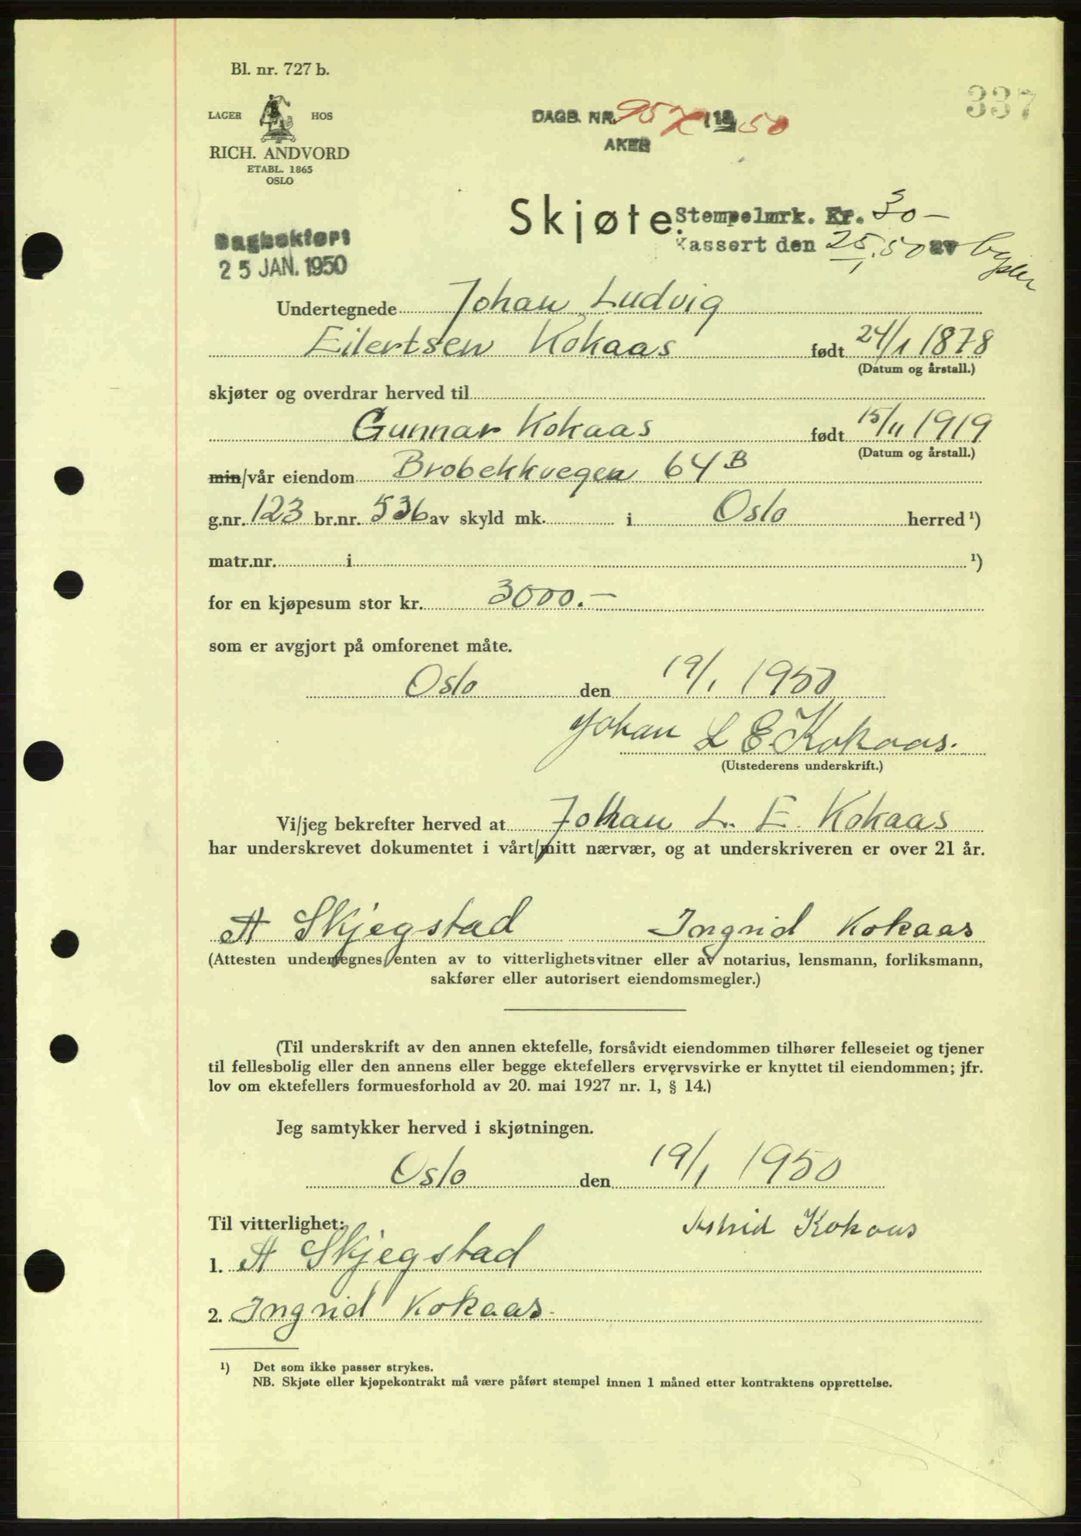 Bl. nr. 727 b.
337
LAGER HOS
DAGB. NR. 957 19 50
AKER
RICH. ANDVORD
ETABL. 1865
OSLO
Skjøte.
Stempelmrk. Kr. 30 –
Kassert den 25/1.50 av
Dagbokført
25 JAN. 1950
Undertegnede Johan Ludvig
Eilertsen Kokaas født 24/1 1878
(Datum og årstall.)
skjøter og overdrar herved til
Gunnar Kokaas født 15/11 1919
(Datum og årstall.)
min/vår eiendom Brobekkvegen 64 B
g.nr. 123 br.nr. 536 av skyld mk. i Oslo herred ¹)
matr.nr. i ¹)
for en kjøpesum stor kr. 3000.–
som er avgjort på omforenet måte.
Oslo den 19/1 1950
Johan L E. Kokaas.
(Utstederens underskrift.)
Vi/jeg bekrefter herved at Johan L. E. Kokaas
har underskrevet dokumentet i vårt/mitt nærvær, og at underskriveren er over 21 år.
A Skjegstad Ingrid Kokaas
(Attesten undertegnes enten av to vitterlighetsvitner eller av notarius, lensmann, forliksmann,
sakfører eller autorisert eiendomsmegler.)
(Til underskrift av den annen ektefelle, forsåvidt eiendommen tilhører felleseiet og tjener
til fellesbolig eller den annens eller begge ektefellers ervervsvirke er knyttet til eiendommen; jfr.
lov om ektefellers formuesforhold av 20. mai 1927 nr. 1, § 14.)
Jeg samtykker herved i skjøtningen.
Oslo den 19/1 1950
Til vitterlighet: Astrid Kokaas
1. A Skjegstad
2. Ingrid Kokaas.
¹) Det som ikke passer strykes.
NB. Skjøte eller kjøpekontrakt må være påført stempel innen 1 måned etter kontraktens opprettelse.